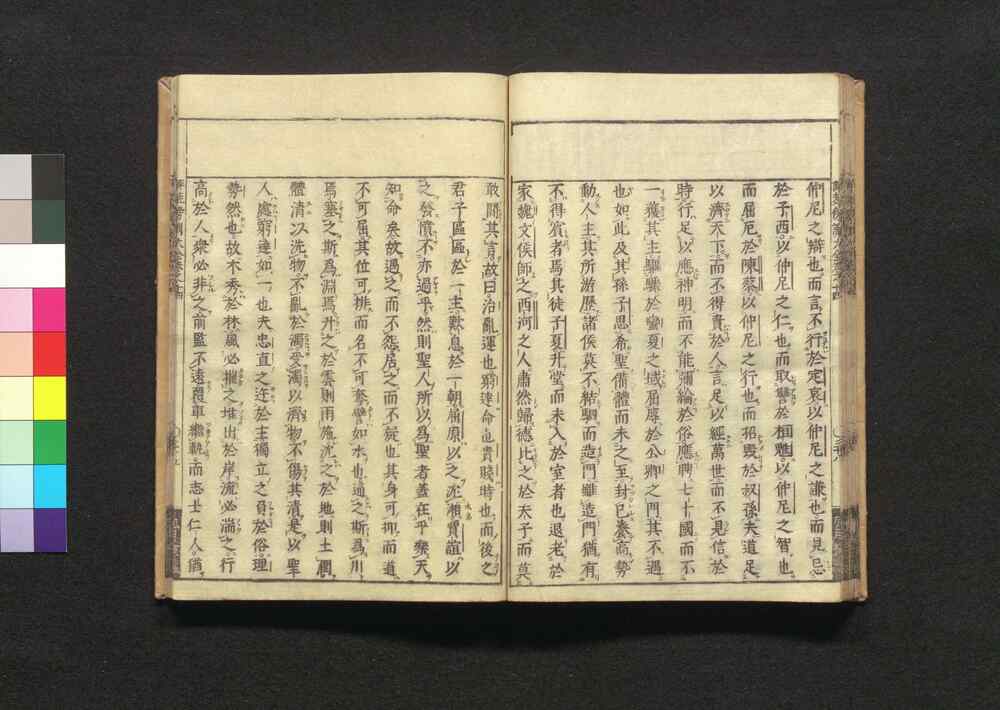 仲尼之辯也而言不行於定哀以仲尼之謙也而見忌
於子西以仲尼之仁也而取讐於桓魋以仲尼之智也
而屈厄於陳蔡以仲尼之行也而招毀於叔孫夫道足
以濟天下而不得貴於人言足以經萬世而不見信於
時行足以應神明而不能彌綸於俗應聘七十國而不
一獲其主驅驟於蠻夏之域屈辱於公卿之門其不遇
也如此及其孫子思希聖備體而未之至封已養高勢
動人主其所游歷諸侯莫不結駟而造門雖造門猶有
不得賓者焉其徒子夏升堂而未入於室者也退老於
家魏文侯師之西河之人肅然歸德比之於天子而莫
敢間其言故曰治亂運也窮達命也貴賤時也而後之
君子區區於一主歎息於一朝屈原以之沈湘賈誼以
之發憤不亦過乎然則聖人所以爲聖者蓋在乎樂天
知命矣故遇之而不怨居之而不疑也其身可抑而道
不可屈其位可排而名不可奪譬如水也通之斯爲川
焉塞之斯爲淵焉升之於雲則雨施沈之於地則土潤
體清以洗物不亂於濁受濁以濟物不傷其清是以聖
人處窮達如一也夫忠直之迕於主獨立之負於俗理
勢然也故木秀於林風必摧之堆出於岸流必湍之行
高於人衆必非之前監不遠覆車繼軌而志士仁人猶